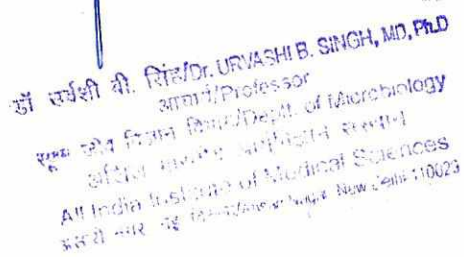 डॉ उर्वशी बी. सिंह/Dr. URVASHI B. SINGH, MD, Ph.D
आचार्य/Professor
सूक्ष्म जीव विज्ञान विभाग/Deptt. of Microbiology
अखिल
All India Institute of Medical Sciences
नगर, नई New Delhi-110029